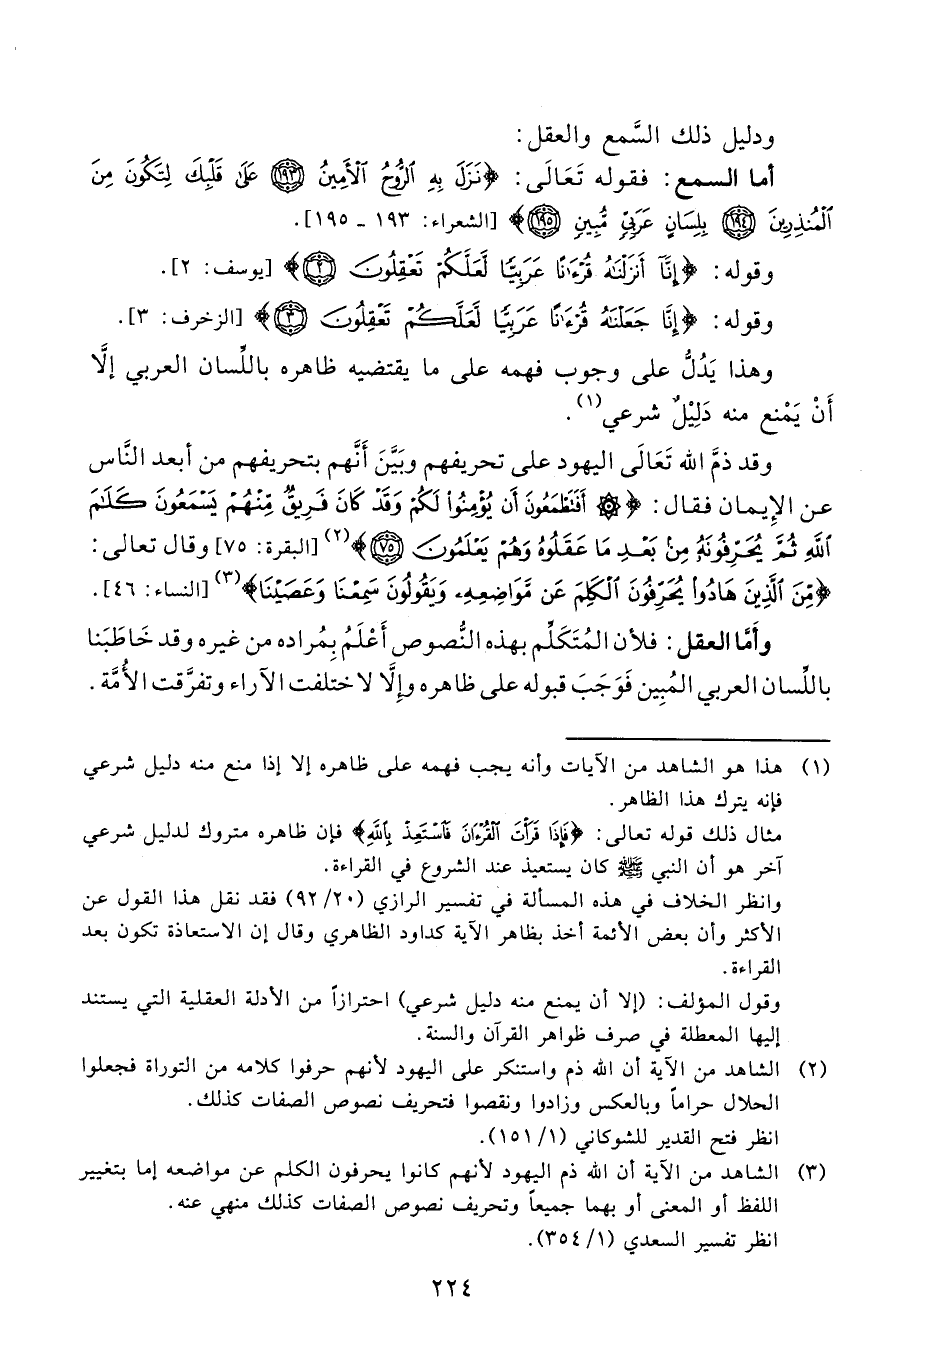 ودليل ذلك السَّمع والعقل:
أما السمع: فقوله تَعَالَى: ﴿نَزَلَ بِهِ ٱلرُّوحُ ٱلْأَمِينُ ﴿١٩٣﴾ عَلَىٰ قَلْبِكَ لِتَكُونَ مِنَ
ٱلْمُنذِرِينَ ﴿١٩٤﴾ بِلِسَانٍ عَرَبِيٍّ مُّبِينٍ ﴿١٩٥﴾﴾ [الشعراء: ١٩٣ ـ ١٩٥].
وقوله: ﴿إِنَّآ أَنزَلْنَٰهُ قُرْءَٰنًا عَرَبِيًّا لَّعَلَّكُمْ تَعْقِلُونَ ﴿٢﴾﴾ [يوسف: ٢].
وقوله: ﴿إِنَّا جَعَلْنَٰهُ قُرْءَٰنًا عَرَبِيًّا لَّعَلَّكُمْ تَعْقِلُونَ ﴿٣﴾﴾ [الزخرف: ٣].
وهذا يَدُلُّ على وجوب فهمه على ما يقتضيه ظاهره باللِّسان العربي إلَّا
أَنْ يَمْنع منه دَلِيْلٌ شرعي(١).
وقد ذمَّ الله تَعَالَى اليهود على تحريفهم وبَيَّنَ أَنَّهم بتحريفهم من أبعد النَّاس
عن الإيمان فقال: ﴿۞ أَفَتَطْمَعُونَ أَن يُؤْمِنُوا۟ لَكُمْ وَقَدْ كَانَ فَرِيقٌ مِّنْهُمْ يَسْمَعُونَ كَلَٰمَ
ٱللَّهِ ثُمَّ يُحَرِّفُونَهُۥ مِنۢ بَعْدِ مَا عَقَلُوهُ وَهُمْ يَعْلَمُونَ ﴿٧٥﴾﴾(٢) [البقرة: ٧٥] وقال تعالى:
﴿مِّنَ ٱلَّذِينَ هَادُوا۟ يُحَرِّفُونَ ٱلْكَلِمَ عَن مَّوَاضِعِهِۦ وَيَقُولُونَ سَمِعْنَا وَعَصَيْنَا﴾(٣) [النساء: ٤٦].
وأَمَّا العقل: فلأن المُتَكَلِّم بهذه النُّصوص أَعْلَمُ بِمُراده من غيره وقد خَاطَبَنا
باللِّسان العربي المُبِين فَوَجَبَ قبوله على ظاهره وإِلَّا لاختلفت الآراء وتفرَّقت الأُمَّة.
(١) هذا هو الشاهد من الآيات وأنه يجب فهمه على ظاهره إلا إذا منع منه دليل شرعي
فإنه يترك هذا الظاهر.
مثال ذلك قوله تعالى: ﴿فَإِذَا قَرَأْتَ ٱلْقُرْءَانَ فَٱسْتَعِذْ بِٱللَّهِ﴾ فإن ظاهره متروك لدليل شرعي
آخر هو أن النبي ﷺ كان يستعيذ عند الشروع في القراءة.
وانظر الخلاف في هذه المسألة في تفسير الرازي (٩٢/٢٠) فقد نقل هذا القول عن
الأكثر وأن بعض الأئمة أخذ بظاهر الآية كداود الظاهري وقال إن الاستعاذة تكون بعد
القراءة.
وقول المؤلف: (إلا أن يمنع منه دليل شرعي) احترازاً من الأدلة العقلية التي يستند
إليها المعطلة في صرف ظواهر القرآن والسنة.
(٢) الشاهد من الآية أن الله ذم واستنكر على اليهود لأنهم حرفوا كلامه من التوراة فجعلوا
الحلال حراماً وبالعكس وزادوا ونقصوا فتحريف نصوص الصفات كذلك.
انظر فتح القدير للشوكاني (١٥١/١).
(٣) الشاهد من الآية أن الله ذم اليهود لأنهم كانوا يحرفون الكلم عن مواضعه إما بتغيير
اللفظ أو المعنى أو بهما جميعاً وتحريف نصوص الصفات كذلك منهي عنه.
انظر تفسير السعدي (٣٥٤/١).
٢٢٤